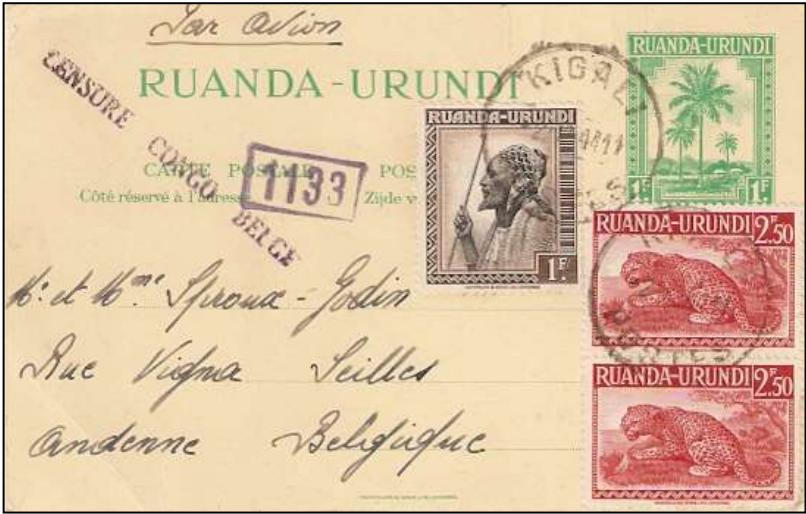 Par avion
RUANDA-URUNDI
RUANDA-URUNDI
CENSURE CONGO BELGE
1133
CARTE POSTALE POS
Côté réservé à l'adresse Zijde v
RUANDA-URUNDI
1F.
KIGALI
1F. 1F.
RUANDA-URUNDI 2F.50
RUANDA-URUNDI 2F.50
Mr et Mme Sproux-Godin
Rue Vigna Seilles
Andenne Belgique